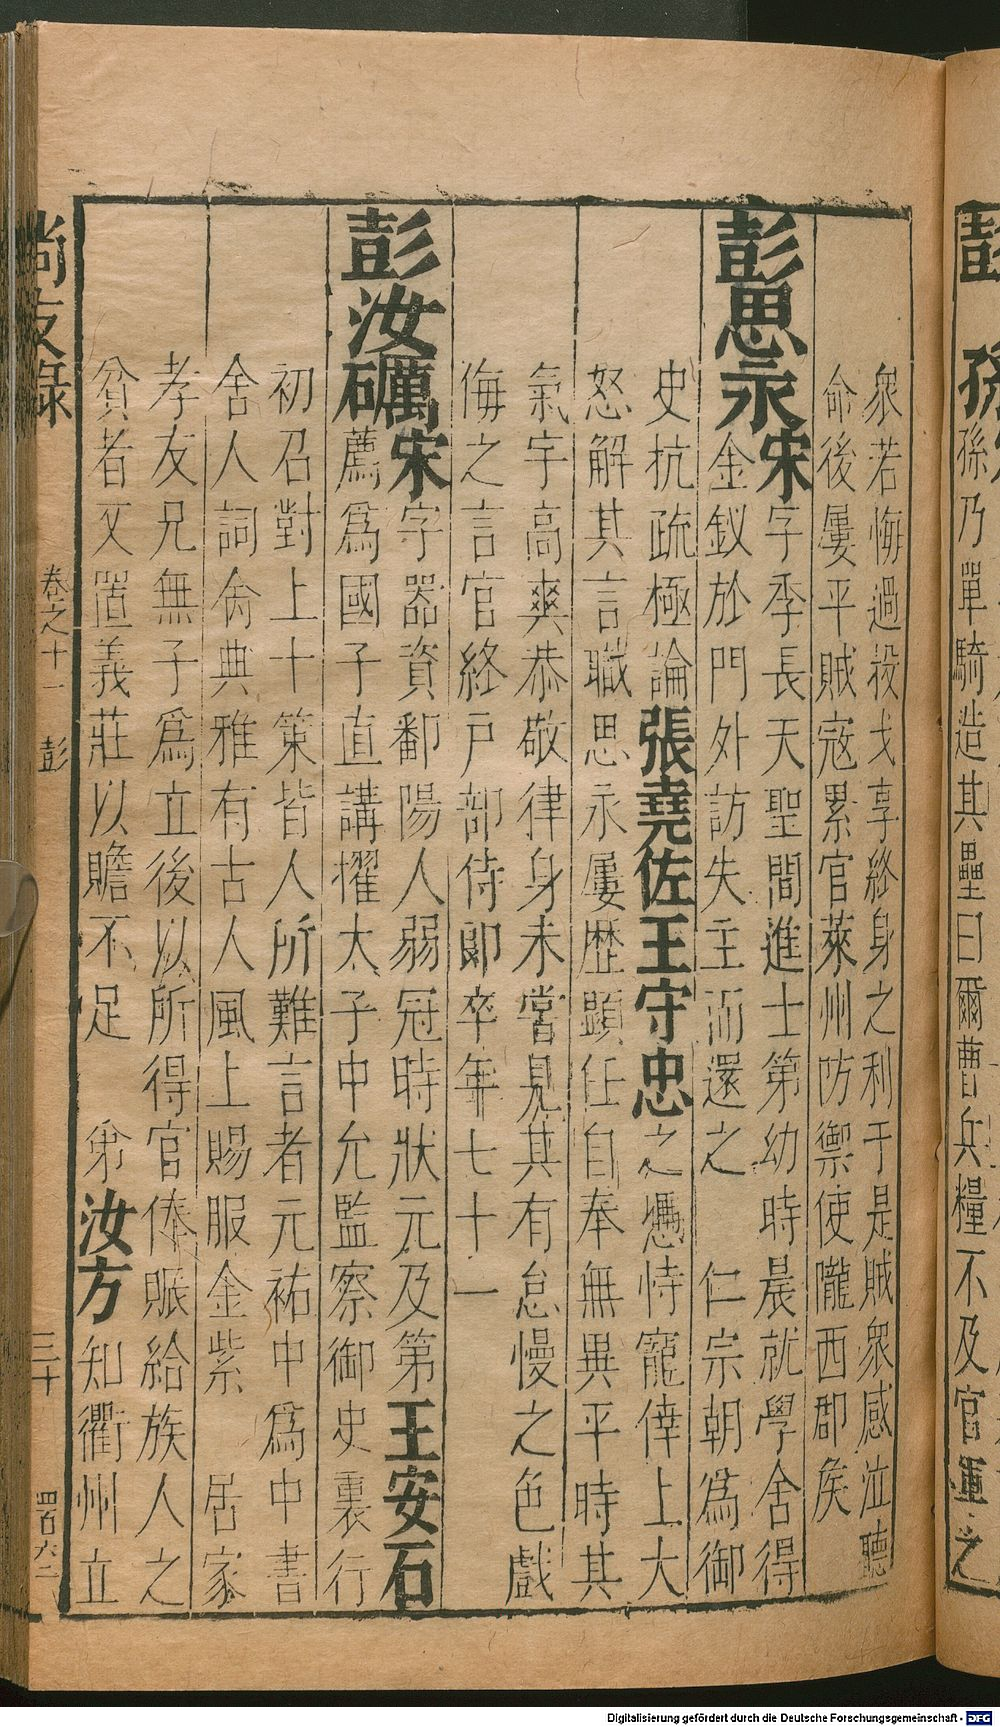 彭 孫 孫乃單騎造其壘曰爾曹兵糧不及官軍之
眾若悔過投戈享終身之利于是賊眾感泣聽
命後屢平賊寇累官萊州防禦使隴西郡矦
彭思永宋字季長天聖間進士第幼時晨就學舍得
金釵於門外訪失主而還之 仁宗朝為御
史抗疏極論張堯佐王守忠之憑恃寵倖上大
怒解其言職思永屢歷顯任自奉無異平時其
氣宇高爽恭敬律身未嘗見其有怠慢之色戲
侮之言官終戶部侍郎卒年七十一
彭汝礪宋字器資鄱陽人弱冠時狀元及第王安石
薦爲國子直講擢太子中允監察御史裏行
初召對上十策皆人所難言者元祐中爲中書
舍人詞命典雅有古人風上賜服金紫 居家
孝友兄無子爲立後以所得官俸賑給族人之
貧者又置義莊以贍不足 弟汝方知衢州立
尚友錄 卷之十一 彭 三十 四百六二
Digitalisierung gefördert durch die Deutsche Forschungsgemeinschaft - DFG